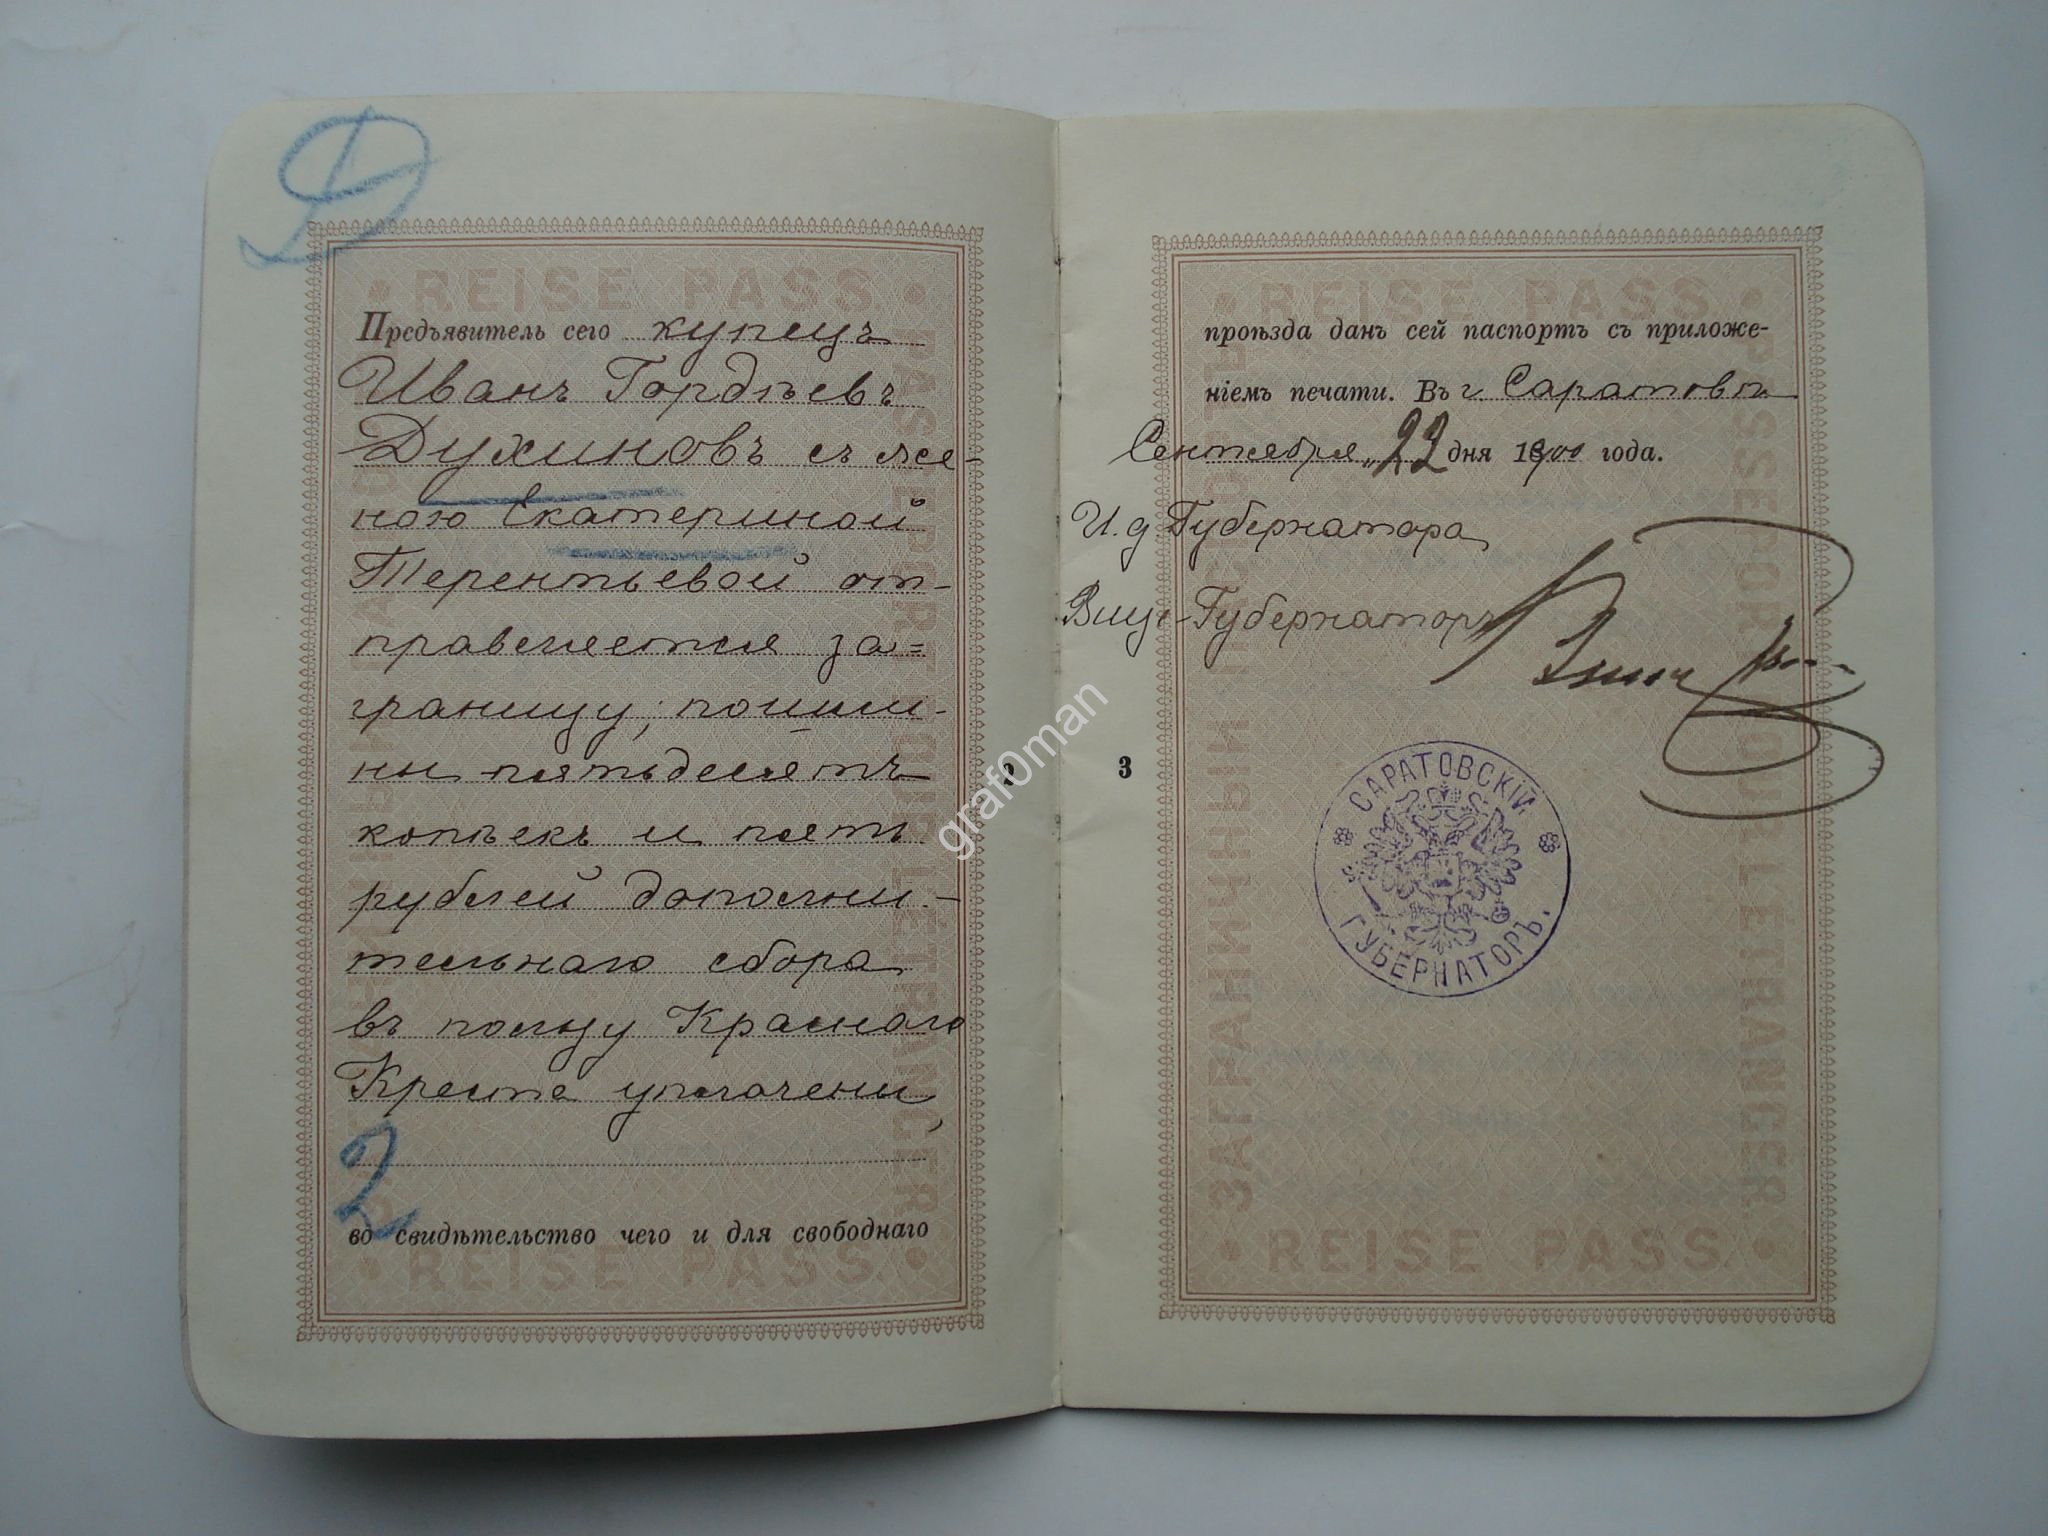 Д
REISE PASS
Предъявитель сего купецъ
Иванъ Гордѣевъ
Духиновъ съ же-
ною Екатериной
Терентьевой от-
правляется за=
границу, пошли-
ны пятьдесятъ
копѣекъ и пять
рублей дополни-
тельнаго сбора
въ пользу Краснаго
Креста уплачены,
2
во свидѣтельство чего и для свободнаго
REISE PASS
PASSEPORT POUR L'ETRANGER
grafoman
REISE PASS
проѣзда данъ сей паспортъ съ приложе-
ніемъ печати. Въ г. Саратовѣ
Сентября „22 дня 1900 года.
И. д. Губернатора
Вице-Губернаторъ
3
САРАТОВСКІЙ
ГУБЕРНАТОРЪ.
ЗАГРАНИЧНЫЙ ПАСПОРТЪ
PASSEPORT POUR L'ETRANGER
REISE PASS